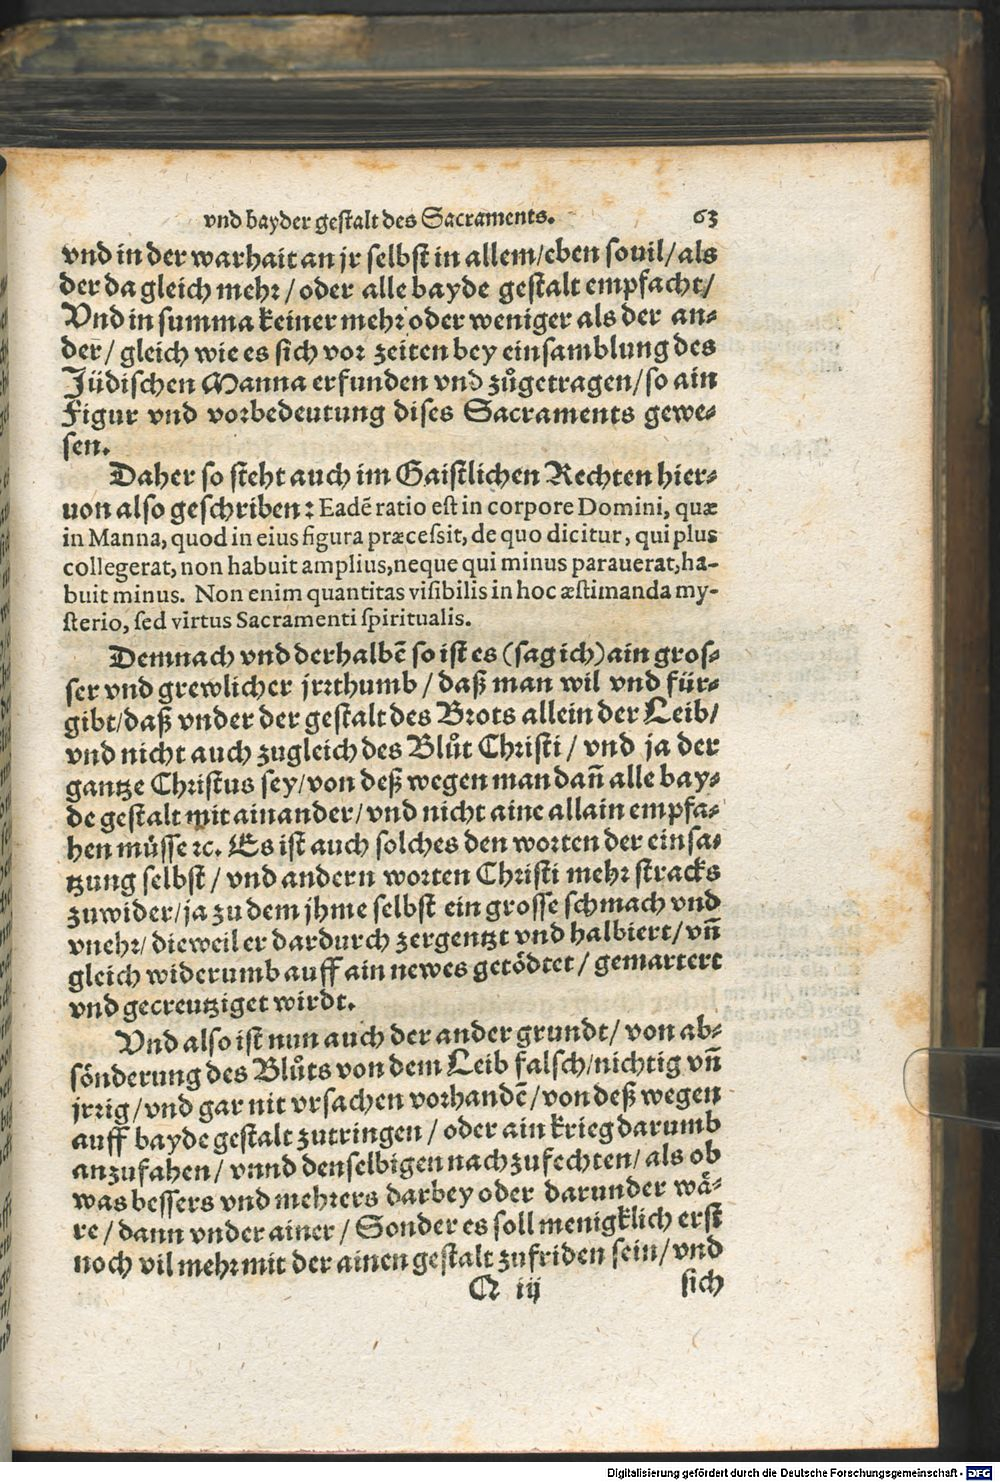 vnd bayder gestalt des Sacraments. 63
vnd in der warhait an jr selbst in allem/eben souil/als
der da gleich mehr/oder alle bayde gestalt empfacht/
Vnd in summa keiner mehr oder weniger als der an⸗
der/gleich wie es sich vor zeiten bey einsamblung des
Jüdischen Manna erfunden vnd zůgetragen/so ain
Figur vnd vorbedeutung dises Sacraments gewe⸗
sen.
Daher so steht auch im Gaistlichen Rechten hier⸗
uon also geschriben: Eadẽ ratio est in corpore Domini, quæ
in Manna, quod in eius figura præcessit, de quo dicitur, qui plus
collegerat, non habuit amplius, neque qui minus parauerat, ha-
buit minus. Non enim quantitas visibilis in hoc æstimanda my-
sterio, sed virtus Sacramenti spiritualis.
Demnach vnd derhalbẽ so ist es (sag ich) ain gros⸗
ser vnd grewlicher jrrthumb/daß man wil vnd für⸗
gibt/daß vnder der gestalt des Brots allein der Leib/
vnd nicht auch zugleich des Blůt Christi/vnd ja der
gantze Christus sey/von deß wegen man dañ alle bay⸗
de gestalt mit ainander/vnd nicht aine allain empfa⸗
hen müsse ꝛc. Es ist auch solches den worten der einsa⸗
tzung selbst/vnd andern worten Christi mehr stracks
zuwider/ja zu dem jhme selbst ein grosse schmach vnd
vnehr/dieweil er dardurch zergentzt vnd halbiert/vñ
gleich widerumb auff ain newes getödtet/gemartert
vnd gecreutziget wirdt.
Vnd also ist nun auch der ander grundt/von ab⸗
sönderung des Blůts von dem Leib falsch/nichtig vñ
jrrig/vnd gar nit vrsachen vorhandẽ/von deß wegen
auff bayde gestalt zutringen/oder ain krieg darumb
anzufahen/vnnd denselbigen nach zufechten/als ob
was bessers vnd mehrers darbey oder darunder wä⸗
re/dann vnder ainer/Sonder es soll menigklich erst
noch vil mehr mit der ainen gestalt zufriden sein/vnd
Q iij sich
Digitalisierung gefördert durch die Deutsche Forschungsgemeinschaft - DFG